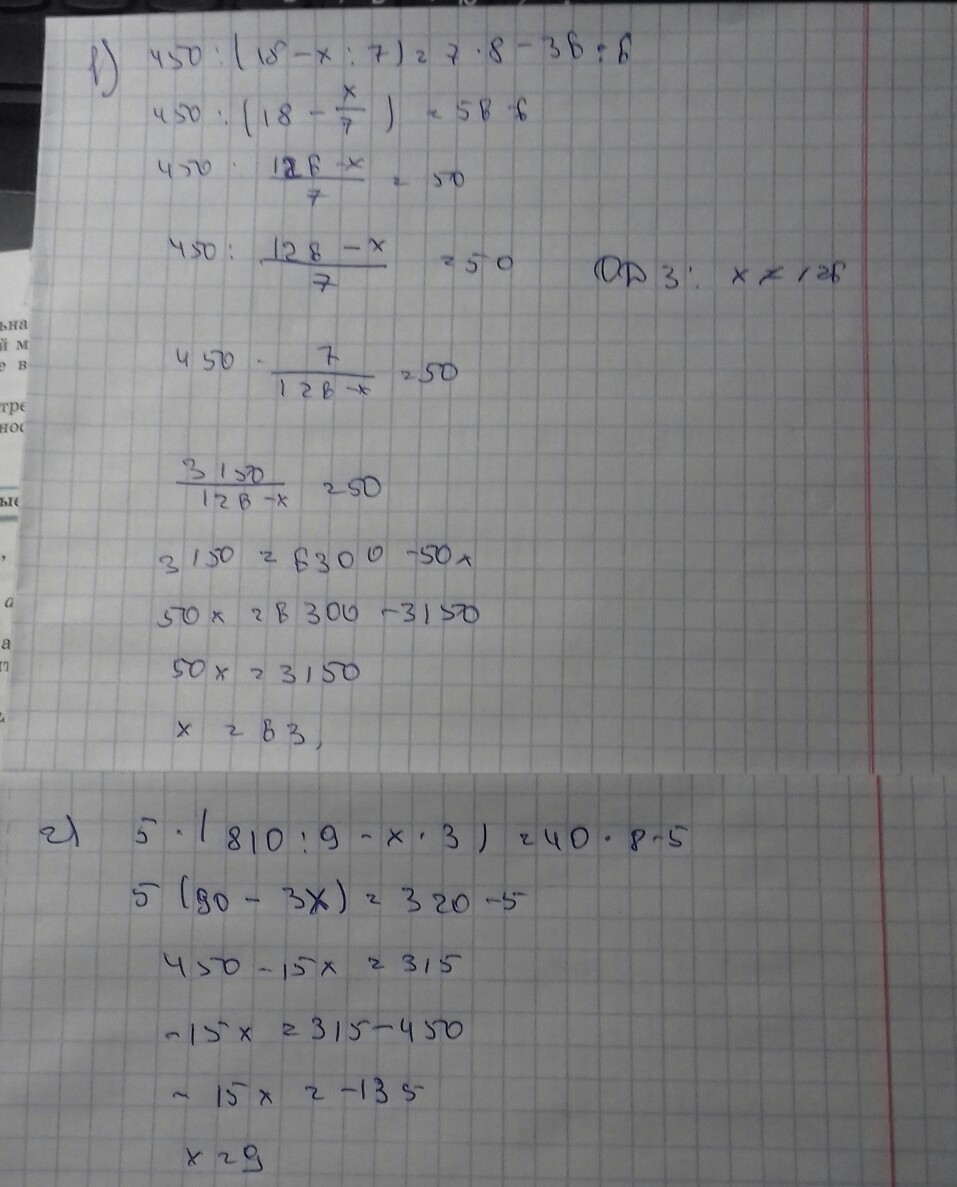 в) 450 : (18 - x : 7) = 7 · 8 - 36 : 6
450 : (18 - x/7) = 56 - 6
450 · 126 - x/7 = 50
450 : 126 - x/7 = 50 ОДЗ: x ≠ 126
450 · 7/126 - x = 50
3150/126 - x = 50
3150 = 6300 - 50x
50x = 6300 - 3150
50x = 3150
x = 63,
г) 5 · (810 : 9 - x · 3) = 40 · 8 - 5
5 (90 - 3x) = 320 - 5
450 - 15x = 315
- 15x = 315 - 450
- 15x = -135
x = 9
ьна
й м
е в
тре
нос
ые
а
а